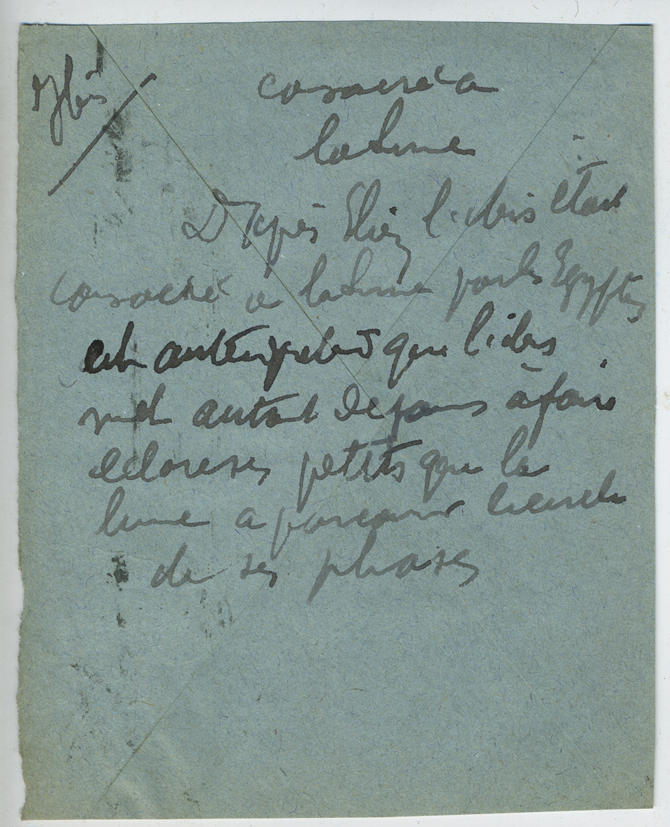 Ibis
consacré a
la lune
D'après Elien l'ibis était
consacré à la lune par les Egyptiens
que l'ibis
met autant de jours à faire
eclore ses petits que la
lune a parcourir le cercle
de ses phases